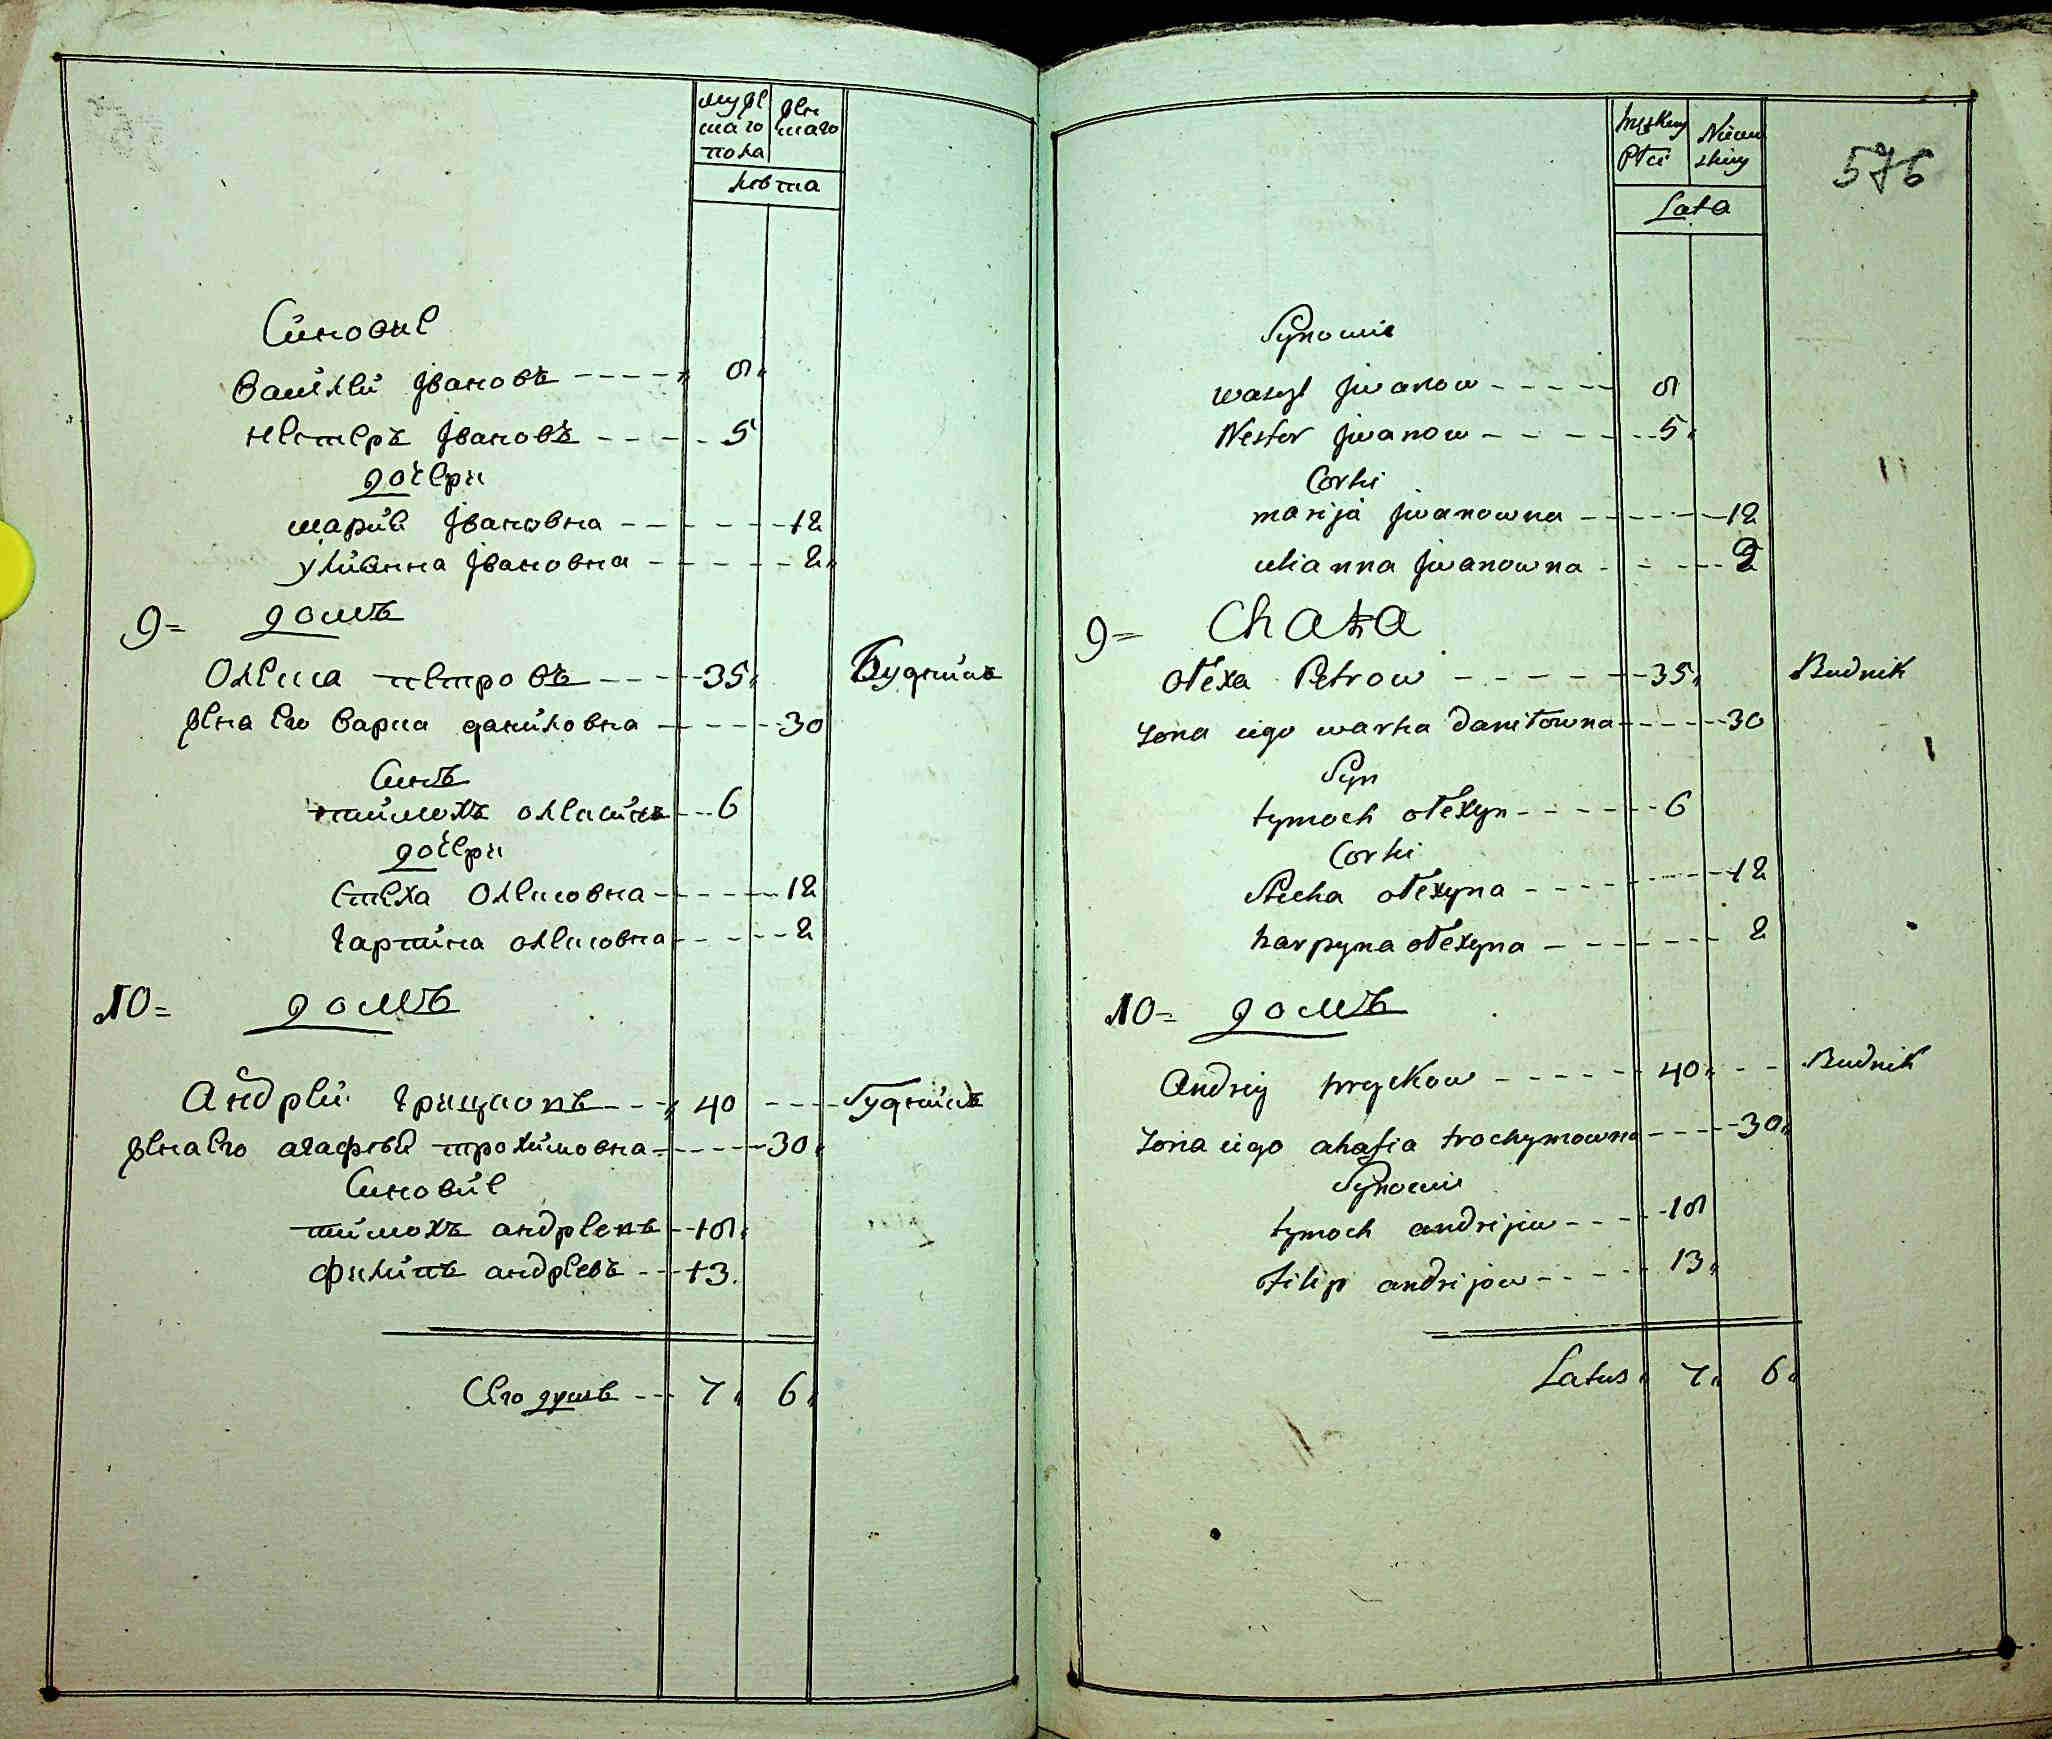 мужескаго пола
женскаго
лѣта
Синовие
Василий Івановъ ---- 8
Нестеръ Івановъ ---- 5
дочери
мария Івановна ---- 12
улиянна Івановна ---- 2
9= домъ
Олекса петровъ ---- 35 Будникъ
жена его варка даниловна ---- 30
Синъ
тимохъ олексинъ --- 6
дочери
Стеха Олексовна ---- 12
гарпина олексовна ---- 2
10= домъ
Андрей Грицковъ --- 40 ---- Будникъ
жена его агафия трохимовна ---- 30
Синовие
тимохъ андреевъ -- 18
филипъ андреевъ -- 13
Сего душъ -- 7 6
Męzkiey Płci
Niewieskiey
Lata
576
Synowie
wasyl Jwanow ----- 8
Nestor Jwanow ----- 5
Corki
marija Jwanowna ----- 12
ulianna Jwanowna ----- 2
9= Chata
ołexa Petrow ----- 35 Budnik
żona iego warka daniłowna ---- 30
Syn
tymoch ołexyn ----- 6
Corki
Stecha ołexyna ----- 12
harpyna ołexyna ----- 2
10= домъ
Andriy hryckow ----- 40 -- Budnik
żona iego ahafia trochymowna ---- 30
Synowie
tymoch andrijiw ---- 18
filip andrijow ---- 13
Latus 7 6